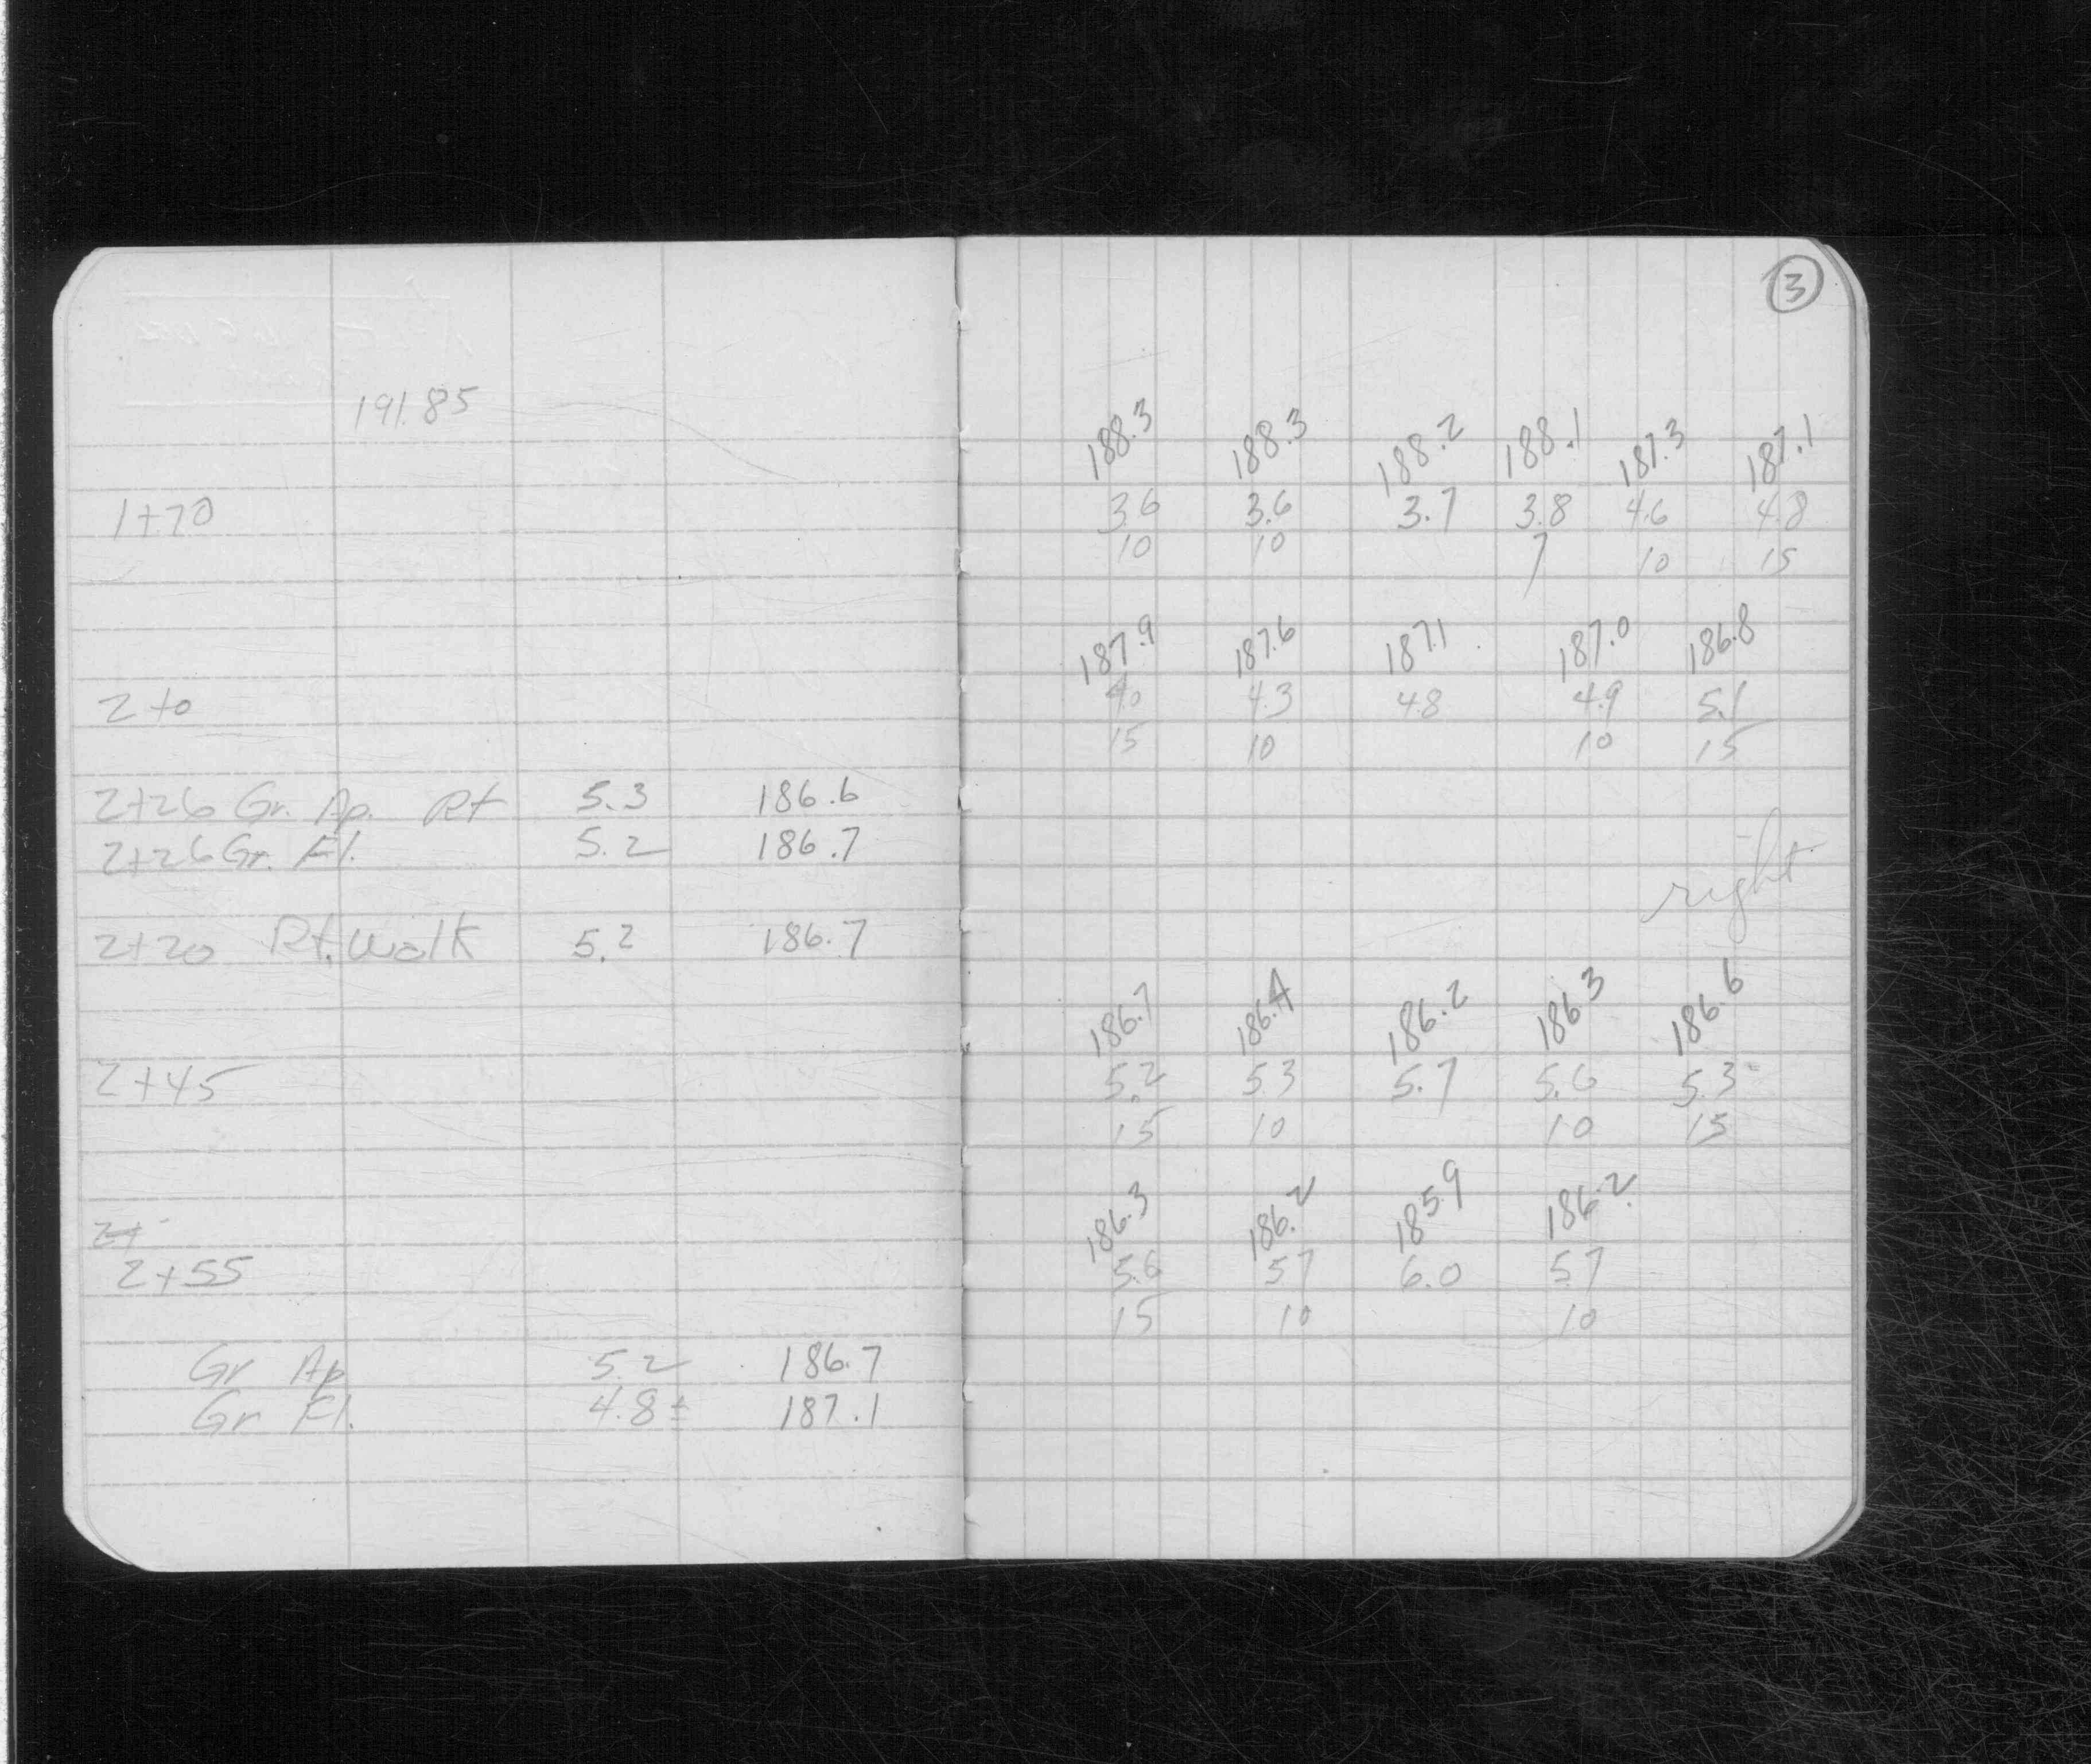 3
191.85
188.3 188.3 188.2 188.1 187.3 187.1
1+70 3.6 3.6 3.7 3.8 4.6 4.8
10 10 7 10 15
187.9 187.6 187.1 187.0 186.8
2+0 4.0 4.3 4.8 4.9 5.1
15 10 10 15
2+26 Gr. Ap. Rt 5.3 186.6
2+26 Gr. Fl. 5.2 186.7
right
2+20 Rt. Walk 5.2 186.7
186.7 186.4 186.2 186.3 186.6
2+45 5.2 5.3 5.7 5.6 5.3
15 10 10 15
186.3 186.2 185.9 186.2
2+
2+55 5.6 5.7 6.0 5.7
15 10 10
Gr Ap 5.2 186.7
Gr Fl. 4.8± 187.1